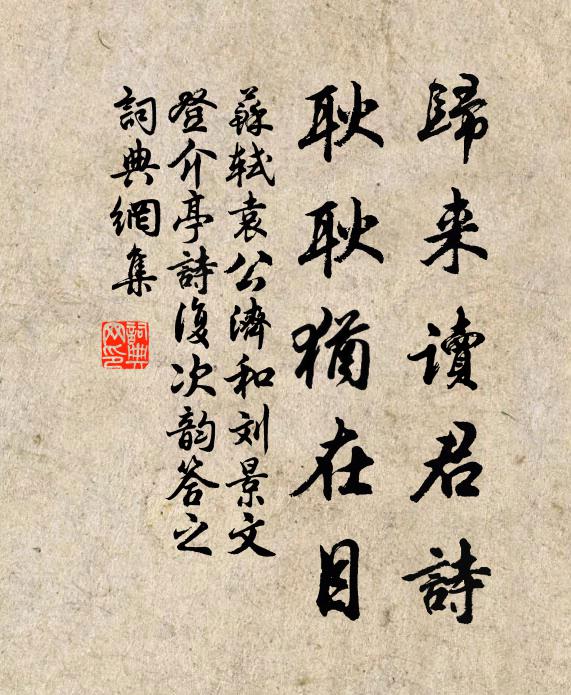 歸来讀君詩
耿耿猶在目
蘇軾袁公濟和刘景文
登介亭詩復次韵答之
詞典網集
詞典网印